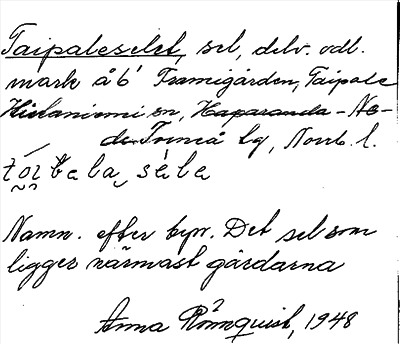 Taipaleselet, sel, delv. odl.
mark å b' Framigården, Taipale
Hietaniemi sn, Haparanda - Ne-
der Torneå tg, Norrb. l.
Namn. efter byn. Det sel som
ligger närmast gårdarna
Anna Rönnquist, 1948